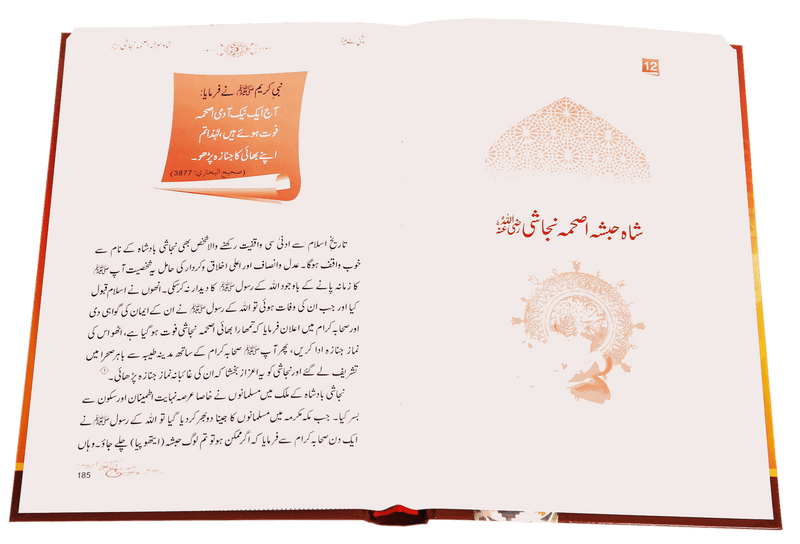 12
شاہ حبشہ اصحمہ نجاشی رضی اللہ عنہ
شاہ حبشہ اصحمہ نجاشی
نبی کریم ﷺ نے فرمایا:
آج ایک نیک آدمی اصحمہ
فوت ہوئے ہیں، لہٰذا تم
اپنے بھائی کا جنازہ پڑھو۔
(صحیح البخاری: 3877)
تاریخ اسلام سے ادنیٰ سی واقفیت رکھنے والا شخص بھی نجاشی بادشاہ کے نام سے
خوب واقف ہوگا۔ عدل وانصاف اور اعلیٰ اخلاق وکردار کی حامل یہ شخصیت آپ ﷺ
کا زمانہ پانے کے باوجود اللہ کے رسول ﷺ کا دیدار نہ کرسکی۔ انھوں نے اسلام قبول
کیا اور جب ان کی وفات ہوئی تو اللہ کے رسول ﷺ نے ان کے ایمان کی گواہی دی
اور صحابہ کرام میں اعلان فرمایا کہ تمھارا بھائی اصحمہ نجاشی فوت ہو گیا ہے، اٹھو اس کی
نماز جنازہ ادا کریں، پھر آپ ﷺ صحابہ کرام کے ساتھ مدینہ طیبہ سے باہر صحرا میں
تشریف لے گئے اور نجاشی کو یہ اعزاز بخشا کہ ان کی غائبانہ نماز جنازہ پڑھائی۔
نجاشی بادشاہ کے ملک میں مسلمانوں نے خاصا عرصہ نہایت اطمینان اور سکون سے
بسر کیا۔ جب مکہ مکرمہ میں مسلمانوں کا جینا دوبھر کردیا گیا تو اللہ کے رسول ﷺ نے
ایک دن صحابہ کرام سے فرمایا کہ اگر ممکن ہو تو تم لوگ حبشہ (ایتھوپیا) چلے جاؤ۔ وہاں
185